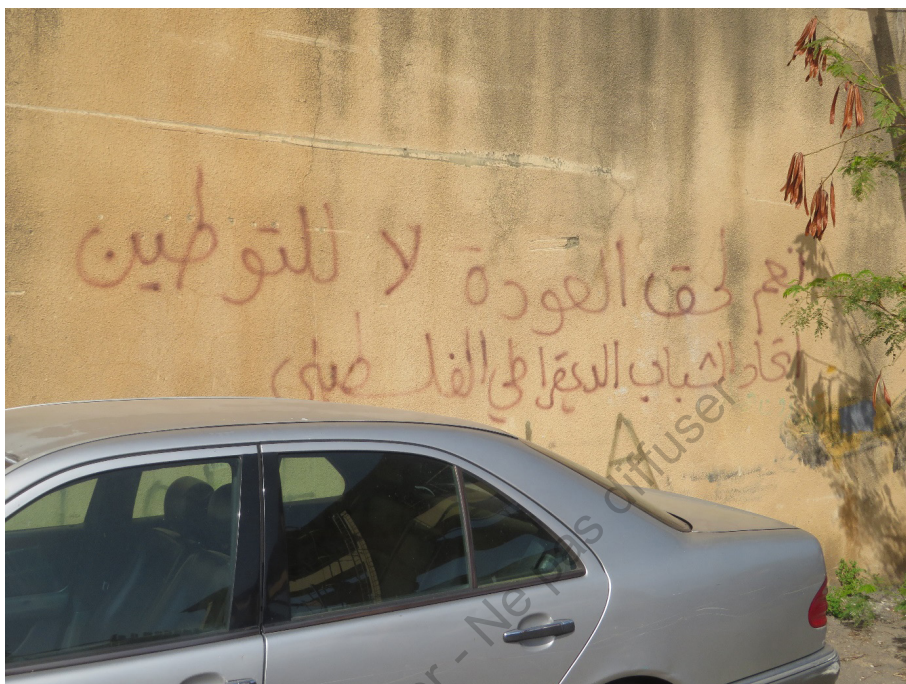 نعم لحق العودة لا للتوطين
اتحاد الشباب الديمقراطي الفلسطيني
r - Ne pas diffuser